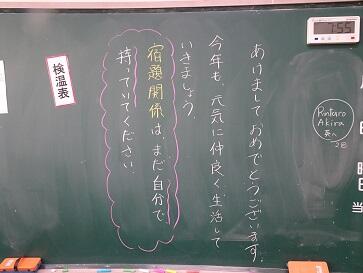 あけましておめでとうございます。
今年も、元気に仲良く、生活して
いきましょう。
宿題関係は、まだ自分で、
持っていてください。
検温表
7:55
Rintaro
Akira
英へ
2回
日
当